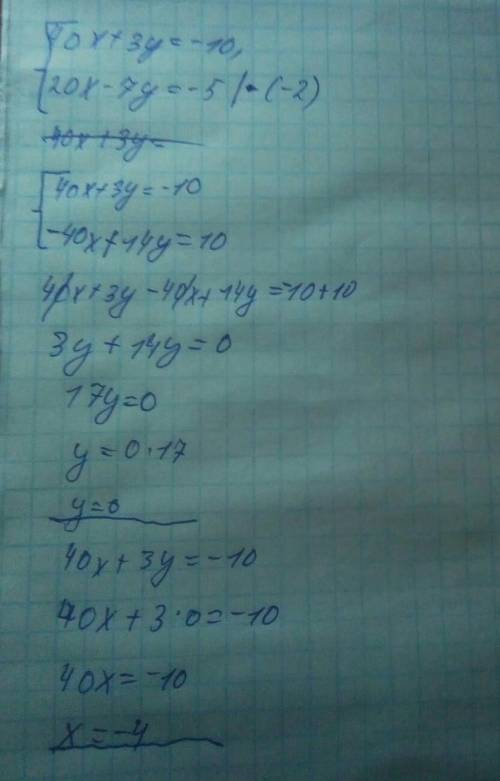 40x+3y=-10,
20x-7y=-5 |·(-2)
40x+3y=
40x+3y=-10
-40x+14y=10
40x+3y-40x+14y=-10+10
3y+14y=0
17y=0
y=0·17
y=0
40x+3y=-10
40x+3·0=-10
40x=-10
x=-4